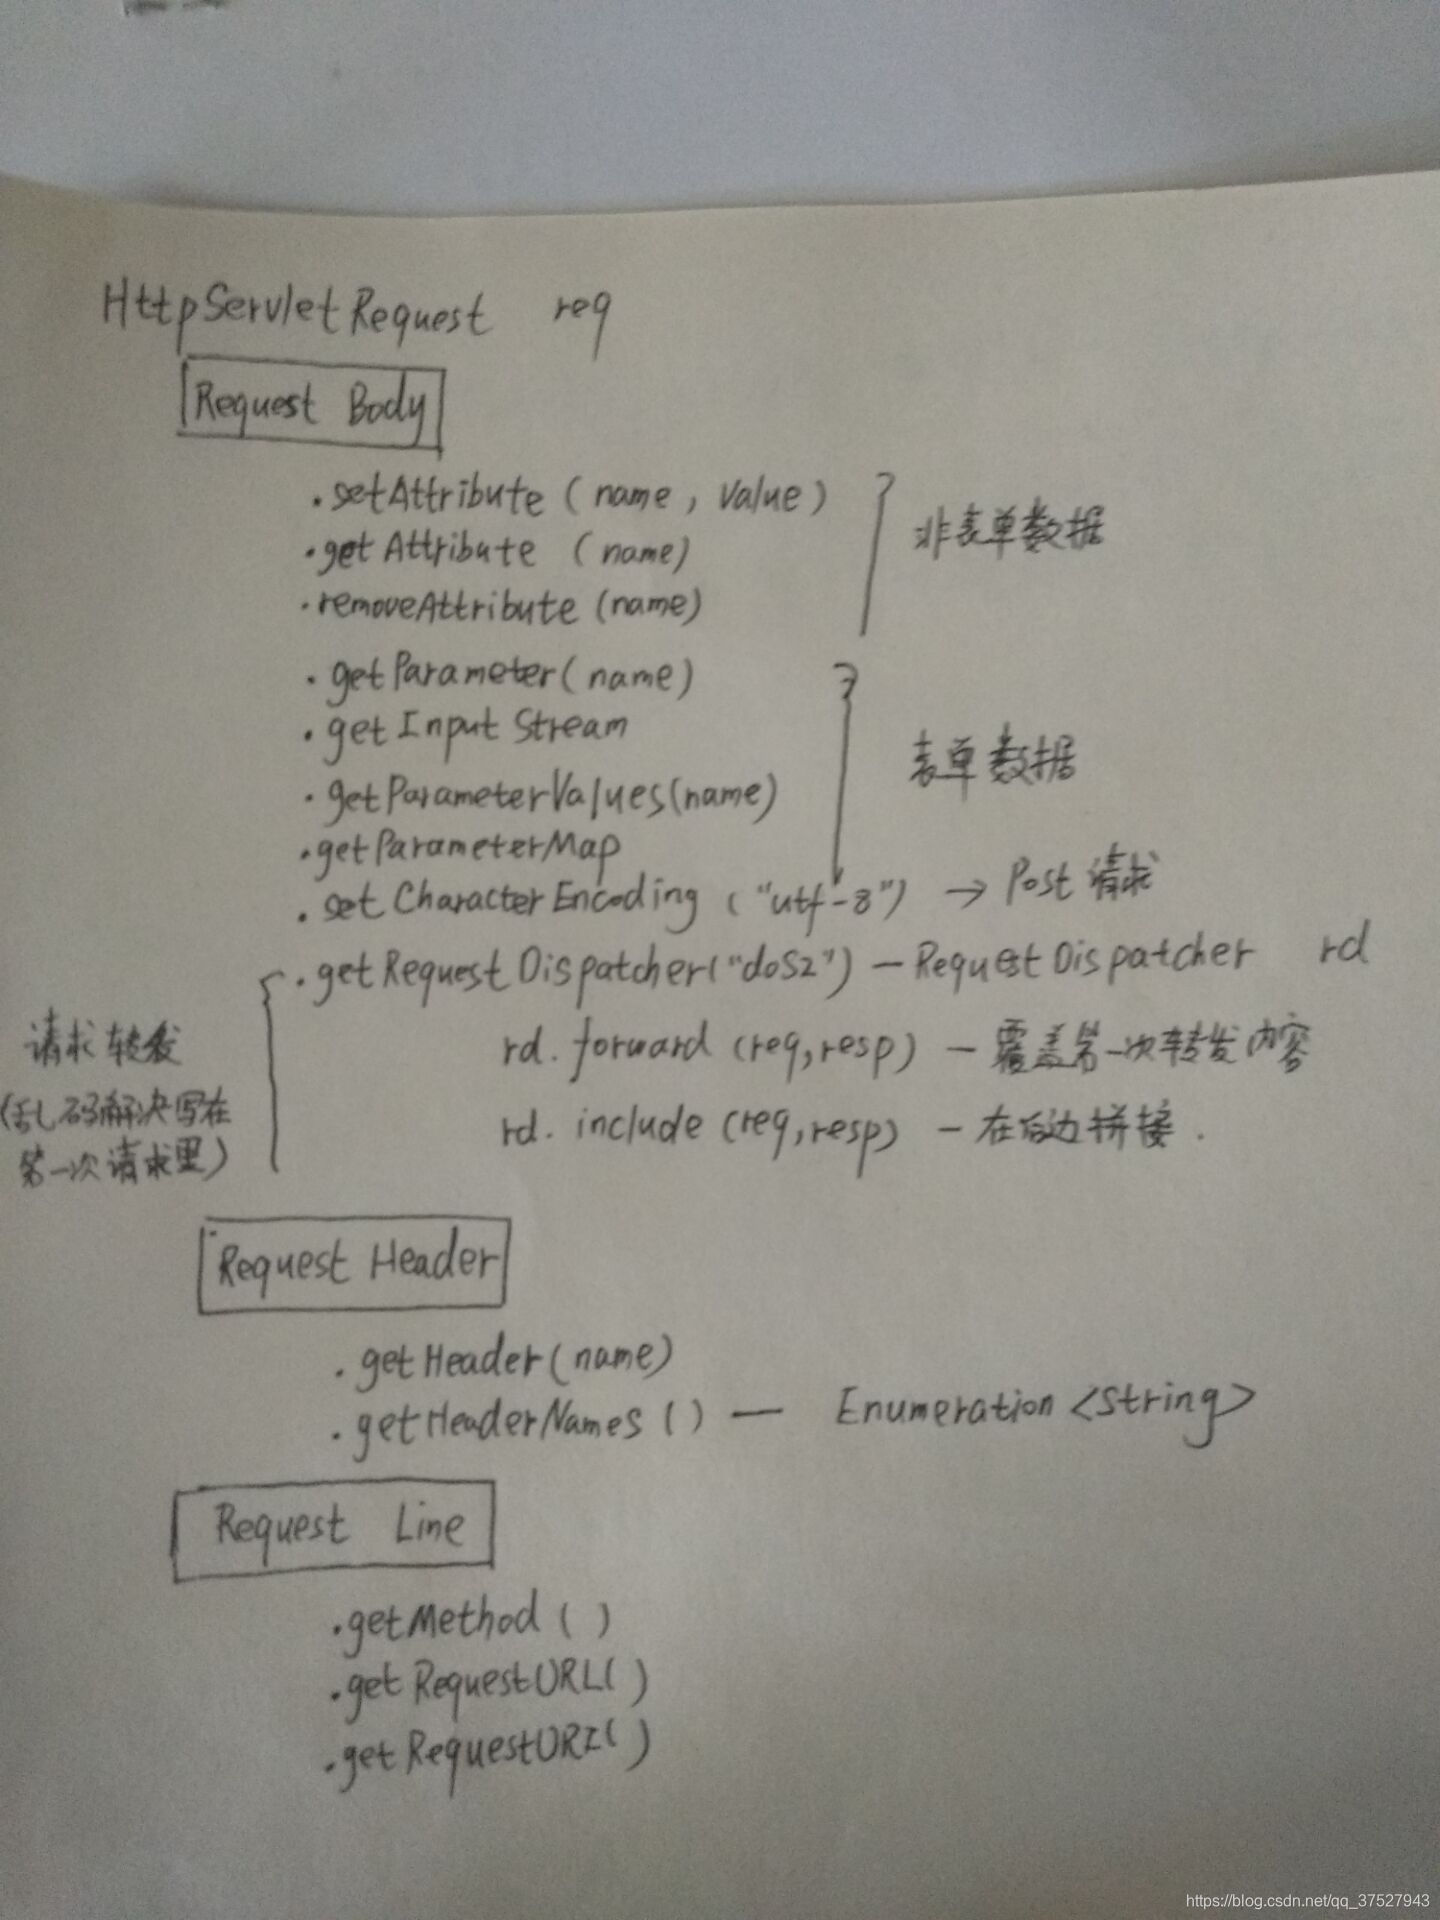 HttpServletRequest req
Request Body
.setAttribute (name, Value)
非表单数据
.getAttribute (name)
.removeAttribute (name)
.getParameter(name)
.getInputStream
表单数据
.getParameterValues(name)
.getParameterMap
.setCharacterEncoding ("utf-8") → Post 请求
.getRequestDispatcher("doS2") — RequestDispatcher rd
请求转发
rd. forward (req,resp) — 覆盖第一次转发内容
(乱码解决写在
rd. include (req,resp) — 在后边拼接.
第一次请求里)
Request Header
.getHeader(name)
.getHeaderNames () — Enumeration <String>
Request Line
.getMethod ( )
.getRequestURL( )
.getRequestURI( )
https://blog.csdn.net/qq_37527943